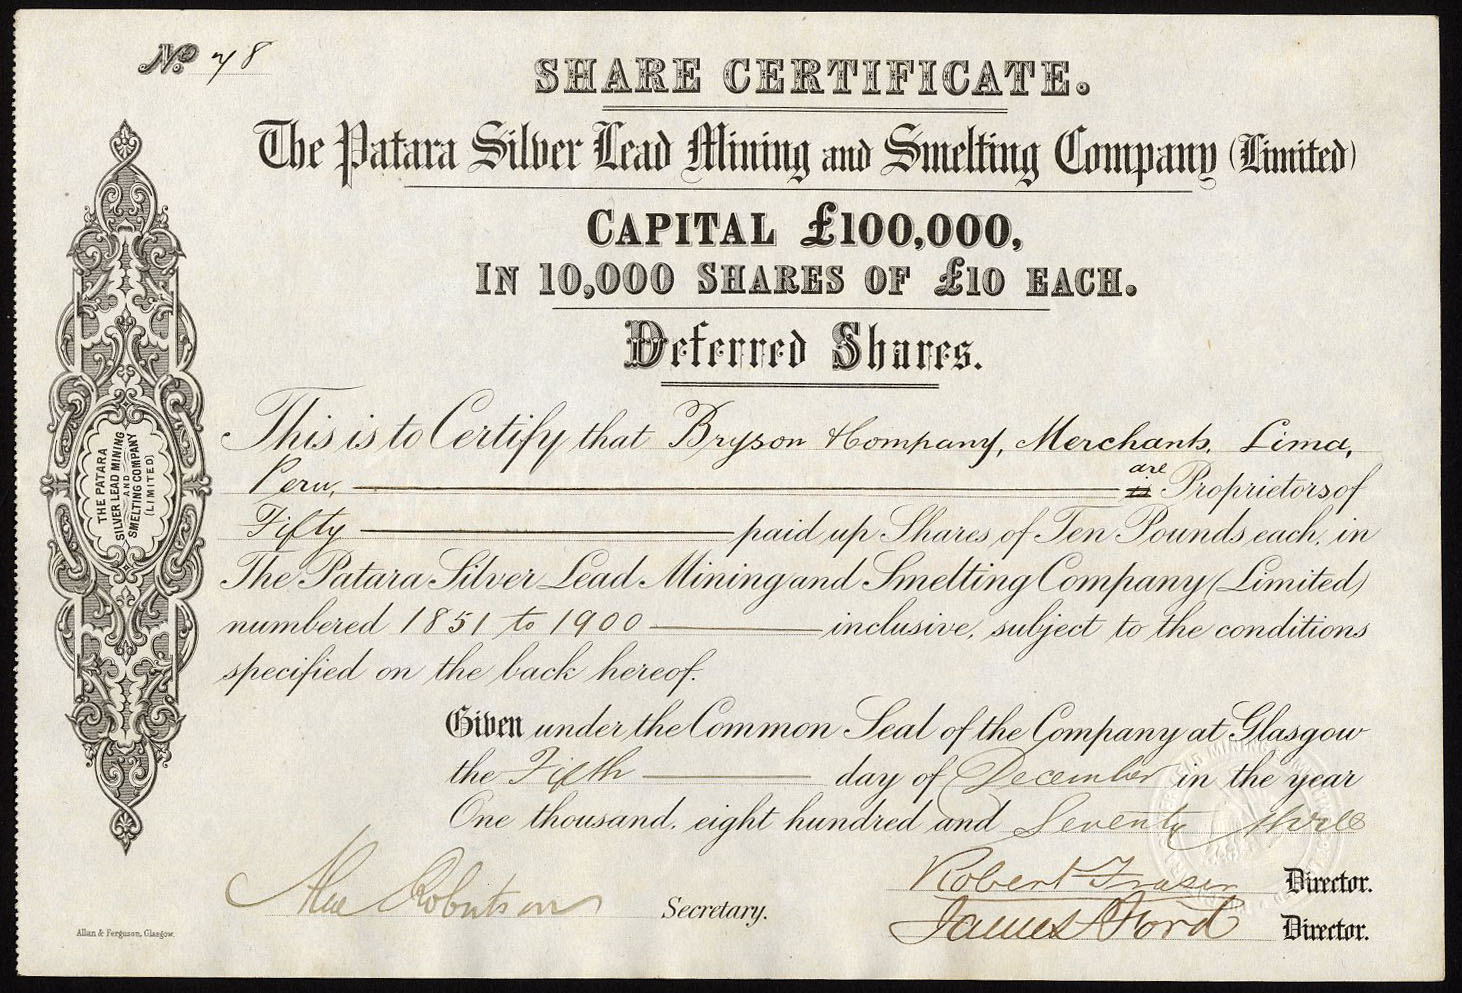 No. 78
SHARE CERTIFICATE.
The Patara Silver Lead Mining and Smelting Company (Limited)
CAPITAL £100,000,
IN 10,000 SHARES OF £10 EACH.
Deferred Shares.
This is to Certify that Bryson & Company, Merchants, Lima,
Peru, is are Proprietors of
Fifty paid up Shares of Ten Pounds each, in
The Patara Silver Lead Mining and Smelting Company (Limited)
numbered 1851 to 1900 inclusive, subject to the conditions
specified on the back hereof.
Given under the Common Seal of the Company at Glasgow
the Fifth day of December in the year
One thousand, eight hundred and Seventy three
Robert Fraser Director.
Alex Robertson Secretary.
James Ford Director.
Allan & Ferguson, Glasgow.
THE PATARA
SILVER LEAD MINING
AND
SMELTING COMPANY
(LIMITED)